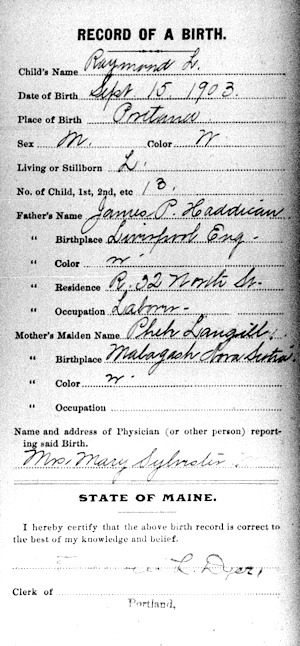 RECORD OF A BIRTH.
Child's Name Raymond L.
Date of Birth Sept 15, 1903.
Place of Birth Portland
Sex M. Color W.
Living or Stillborn L.
No. of Child, 1st, 2nd, etc 13.
Father's Name James P. Haddican
" Birthplace Liverpool Eng.
" Color w.
" Residence R. 32 North St.
" Occupation Laborer
Mother's Maiden Name Langill
" Birthplace Malagash Nova Scotia
" Color w.
" Occupation
Name and address of Physician (or other person) report-
ing said Birth.
Mrs. Mary Sylvester
STATE OF MAINE.
I hereby certify that the above birth record is correct to
the best of my knowledge and belief.
L. Dyer,
Clerk of
Portland,